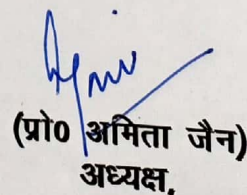 (प्रो0 अमिता जैन)
अध्यक्ष,